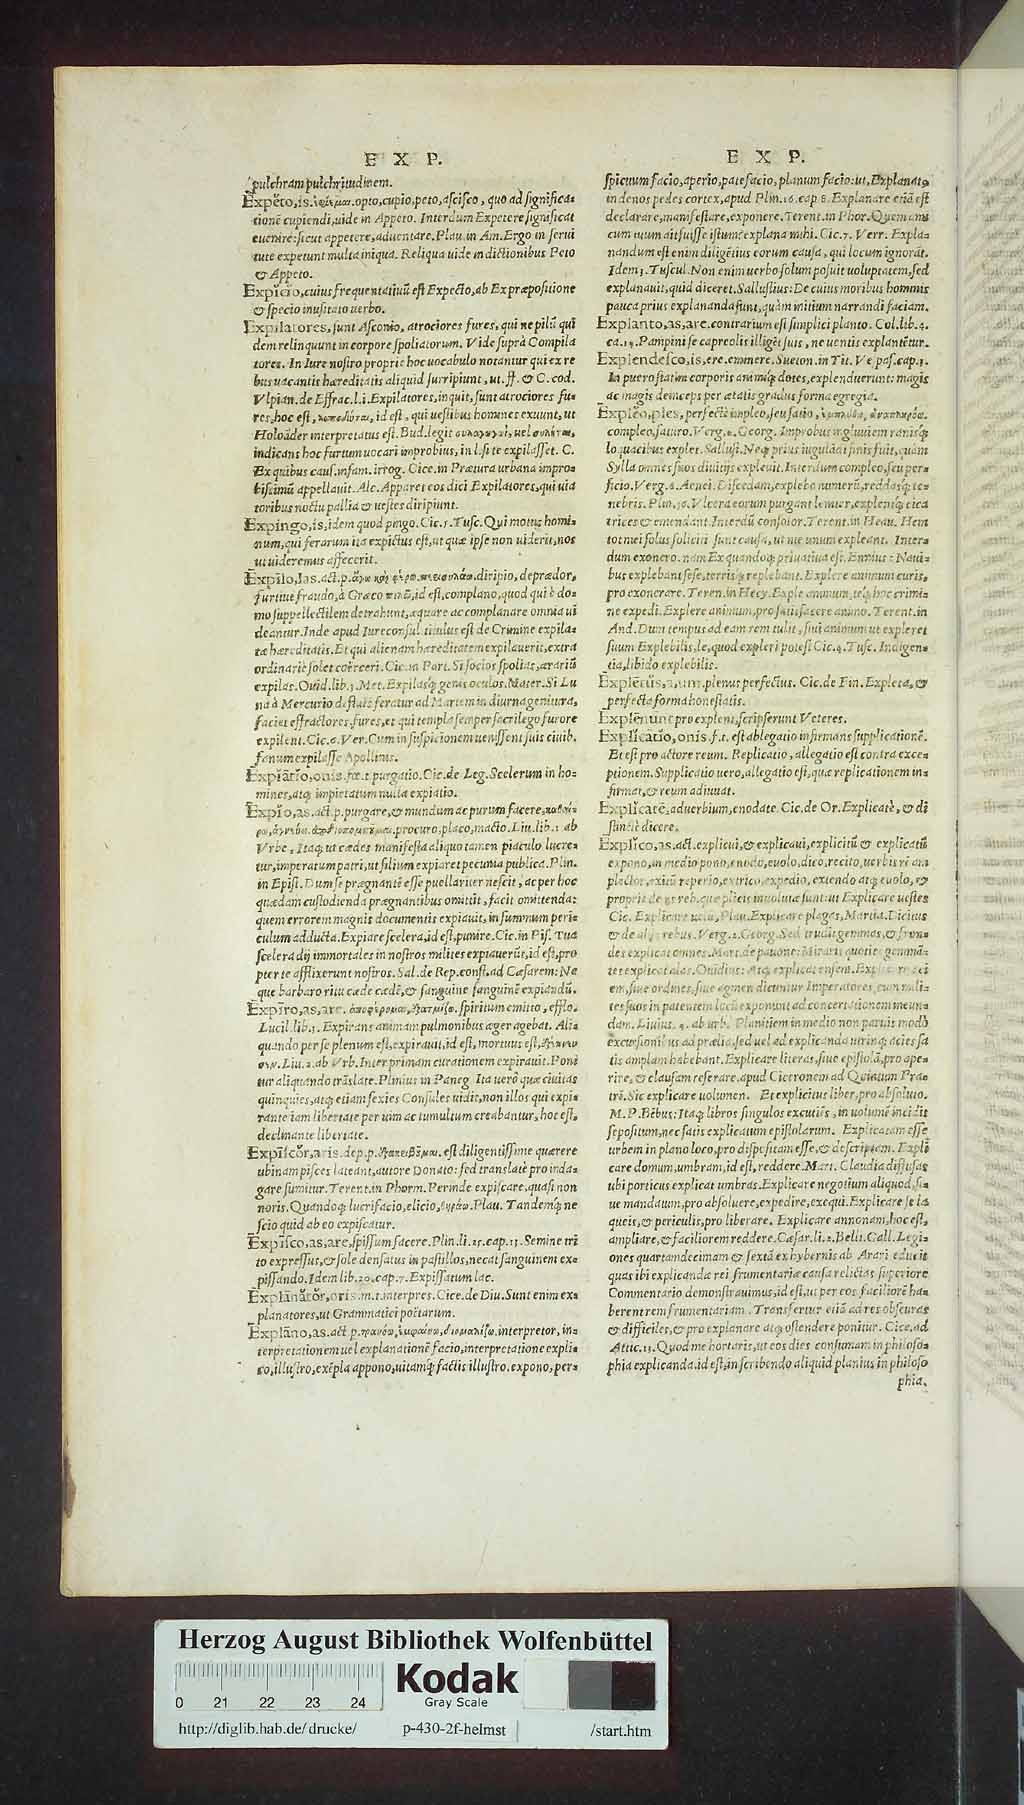 E X P.
pulchram pulchritudinem.
Expĕto, is. opto, cupio, peto, ascisco, quo ad significa-
tionē cupiendi, uide in Appeto. Interdum Expetere significat
euenire: sicut appetere, aduentare. Plau. in Am. Ergo in serui
tute expetunt multa iniqua. Reliqua uide in dictionibus Peto
& Appeto.
Expĭcĭo, cuius frequentatiuū est Expecto, ab Ex præpositione
& specio inusitato uerbo.
Expilatores, sunt Asconio, atrociores fures, qui ne pilū qui
dem relinquunt in corpore spoliatorum. Vide suprà Compila
tores. In Iure nostro proprie hoc uocabulo notantur qui ex re
bus uacantis hæreditatis aliquid surripiunt, ut. ff. & C. cod.
Vlpian. de Effrac. l. i. Expilatores, inquit, sunt atrociores fu-
res, hoc est, id est, qui uestibus homines exuunt, ut
Holoäder interpretatus est. Bud. legit uel
indicans hoc furtum uocari improbius, in l. si te expilasset. C.
Ex quibus caus. infam. irrog. Cice. in Prætura urbana impro-
bissimū appellauit. Alc. Apparet eos dici Expilatores, qui uia
toribus noctu pallia & uestes diripiunt.
Expingo, is, idem quod pingo. Cic. 5. Tusc. Qui motus homi-
num, qui ferarum ita expictus est, ut quæ ipse non uiderit, nos
ut uideremus affecerit.
Expīlo, las. act. p. diripio, deprædor,
furtiue fraudo, à Græco id est, complano, quod qui è do-
mo suppellectilem detrahunt, æquare ac complanare omnia ui
deantur. Inde apud Iureconsul. titulus est de Crimine expila-
tæ hæreditatis. Et qui alienam hæreditatem expilauerit, extra
ordinariè solet coërceri. Cic. in Part. Si socios spolias, ærariū
expilas. Ouid. lib. 3. Met. Expilasq́; genis oculos. Mater. Si Lu
na à Mercurio feratur ad Martem in diurna genitura,
faciet effractores, fures, et qui templa semper sacrilego furore
expilent. Cic. 6. Ver. Cum in suspicionem uenissent suis ciuib.
fanum expilasse Apollinis.
Expĭatĭo, onis. fœ. t. purgatio. Cic. de Leg. Scelerum in ho-
mines, atq; impietatum nulla expiatio.
Expĭo, as. act. p. purgare, & mundum ac purum facere,
procuro, placo, macto. Liu. lib. 1. ab
Vrbe, Itaq; ut cædes manifesta aliquo tamen piaculo lucre-
tur, imperatum patri, ut filium expiaret pecunia publica. Plin.
in Epist. Dum se prægnantē esse puellariter nescit, ac per hoc
quædam custodienda prægnantibus omittit, facit omittenda:
quem errorem magnis documentis expiauit, in summum peri-
culum adducta. Expiare scelera, id est, punire. Cic. in Pis. Tua
scelera dij immortales in nostros milites expiauerūt, id est, pro
pter te afflixerunt nostros. Sal. de Rep. const. ad Cæsarem: Ne
que barbaro ritu cæde cædē, & sanguine sanguinē expiandū.
Expīro, as, are. spiritum emitto, efflo.
Lucil. lib. 1. Expirans animam pulmonibus æger agebat. Ali-
quando per se plenum est, expirauit, id est, mortuus est,
Liu. 2. ab Vrb. Inter primam curationem expirauit. Poni
tur aliquando trāslate. Plinius in Paneg. Ita uerò quæ ciuitas
quinquies, atq; etiam sexies Consules uidit, non illos qui expi-
rante iam libertate per uim ac tumultum creabantur, hoc est,
declinante libertate.
Expīscŏr, aris. dep. p. est diligentissime quærere
ubinam pisces lateant, autore Donato: sed translatè pro inda-
gare sumitur. Terent. in Phorm. Perinde expiscare, quasi non
noris. Quandoq; lucrifacio, elicio, Plau. Tandemq́; ne
scio quid ab eo expiscatur.
Expīsso, as, are, spissum facere. Plin. li. 25. cap. 13. Semine tri
to expressus, & sole densatus in pastillos, necat sanguinem ex-
pissando. Idem lib. 20. cap. 7. Expissatum lac.
Explānātŏr, oris. m. t. interpres. Cice. de Diu. Sunt enim ex-
planatores, ut Grammatici poëtarum.
Explāno, as. act. p. interpretor, in-
terpretationem uel explanationē facio, interpretatione expli-
co, illustro, exēpla appono, uitamq́; factis illustro. expono, per-
E X P.
spicuum facio, aperio, patefacio, planum facio: ut, Explanata
in denos pedes cortex, apud Plin. 16. cap. 8. Explanare etiā est
declarare, manifestare, exponere. Terent. in Phor. Quem ami
cum tuum ait fuisse istum? explana mihi. Cic. 7. Verr. Expla-
nandum est enim diligētius eorum causa, qui locum ignorāt.
Idem 3. Tuscul. Non enim uerbo solum posuit uoluptatem, sed
explanauit, quid diceret. Sallustius: De cuius moribus hominis
pauca prius explananda sunt, quàm initium narrandi faciam.
Explanto, as, are. contrarium est simplici planto. Col. lib. 4.
ca. 14. Pampini se capreolis illigēt suis, ne uentis explantētur.
Explendesco, is, ere. eminere. Sueton. in Tit. Vespas. cap. 3.
In puero statim corporis animiq́; dotes, explenduerunt: magis
ac magis deinceps per ætatis gradus forma egregia.
Explĕo, ples, perfectè impleo, seu satio,
compleo, saturo. Verg. 4. Georg. Improbus ingluuiem ranisq́;
loquacibus explet. Sallust. Neq; prius iugulādi finis fuit, quàm
Sylla omnes suos diuitijs expleuit. Interdum compleo, seu per-
ficio. Verg. 6. Aenei. Discedam, explebo numerū, reddarq́; te-
nebris. Plin. 36. Vlcera eorum purgant leniter, explentq́; cica
trices & emendant. Interdū consolor. Terent. in Heau. Hem
tot mei solius soliciti sunt causa, ut me unum expleant. Inter-
dum exonero. nam Ex quandoq; priuatiua est. Ennius: Naui-
bus explebant sese, terrisq́; replebant. Explere animum curis,
pro exonerare. Teren. in Hecy. Exple animum, teq́; hoc crimi-
ne expedi. Explere animum, pro satisfacere animo. Terent. in
And. Dum tempus ad eam rem tulit, siui animum ut expleret
suum Explebilis, le, quod expleri potest Cic. 4. Tusc. Indigen-
tia, libido explebilis.
Explētŭs, a, um. plenus perfectus. Cic. de Fin. Expleta, &
perfecta forma honestatis.
Explēnunt pro explent, scripserunt Veteres.
Explicatĭo, onis. f. t. est ablegatio infirmans supplicationē.
Et est pro actore reum. Replicatio, allegatio est contra exce-
ptionem. Supplicatio uero, allegatio est, qua replicationem in-
firmat, & reum adiuuat.
Explĭcatē, aduerbium, enodate. Cic. de Or. Explicatè, & di
stinctè dicere.
Explĭco, as. act. explicui, & explicaui, explicitū & explicatū
expono, in medio pono, enodo, euolo, dico, recito, uerbis rē am
plector, exitū reperio, extrico, expedio, extendo atq; euolo, &
proprie de ijs reb. quæ plicis inuolutæ sunt: ut Explicare uestes
Cic. Explicare uela, Plau. Explicare plagas, Martia. Dicitur
& de alijs rebus. Verg. 2. Georg. Sed trudit gemmas, & fron-
des explicat omnes. Mart. de pauone: Miraris quoties gemmā-
tes explicat alas. Ouidius: Atq; explicat ensem. Explicare aci
em, siue ordines, siue agmen dicuntur Imperatores, cum mili-
tes suos in patentem locū exponunt ad concertationem ineun-
dam. Liuius. 4. ab urb. Planitiem in medio non paruis modò
excursionibus ad prælia, sed uel ad explicandas utrinq; acies sa
tis amplam habebant. Explicare literas, siue epistolā, pro ape-
rire, & clausam reserare. apud Ciceronem ad Quintum Fra-
trē. Sic explicare uolumen. Et explicitus liber, pro absoluto.
M. P. Bēbus: Itaq; libros singulos excutiēs, in uolumē incidit
sepositum, nec satis explicatum epistolarum. Explicatam esse
urbem in plano loco, pro dispositam esse, & descriptam. Expli
care domum, umbram, id est, reddere. Mart. Claudia diffusas
ubi porticus explicat umbras. Explicare negotium aliquod, si-
ue mandatum, pro absoluere, expedire, exequi. Explicare se la
queis, & periculis, pro liberare. Explicare annonam, hoc est,
ampliare, & faciliorem reddere. Cæsar. li. 2. Belli. Gall. Legi-
ones quartamdecimam & sextā ex hybernis ab Arari educit
quas ibi explicandæ rei frumentariæ causa relictas superiore
Commentario demonstrauimus, id est, ut per eos faciliorē ha-
berent rem frumentariam. Transfertur etiā ad res obscuras
& difficiles, & pro explanare atq; ostendere ponitur. Cice. ad
Attic. 13. Quod me hortaris, ut eos dies consumam in philoso-
phia explicanda. id est, in scribendo aliquid planius in philoso
phia.
Herzog August Bibliothek Wolfenbüttel
Kodak
Gray Scale
0 21 22 23 24
http://diglib.hab.de/drucke/ p-430-2f-helmst /start.htm